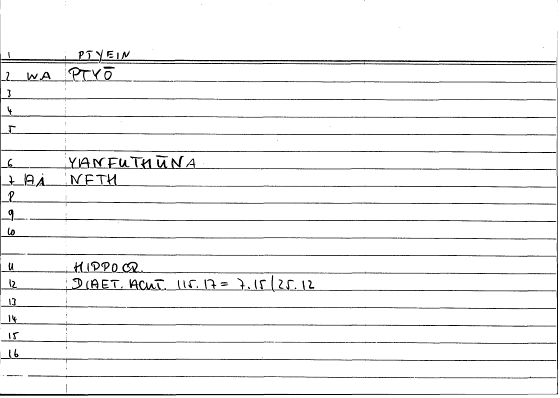 1 PTYEIN
2 WA PTYŌ
3
4
5
6 YANFUTHŪNA
7 Ai NFTH
8
9
10
11 HIPPOCR.
12 DIAET. ACUT. 115.17 = 7.15/25.12
13
14
15
16